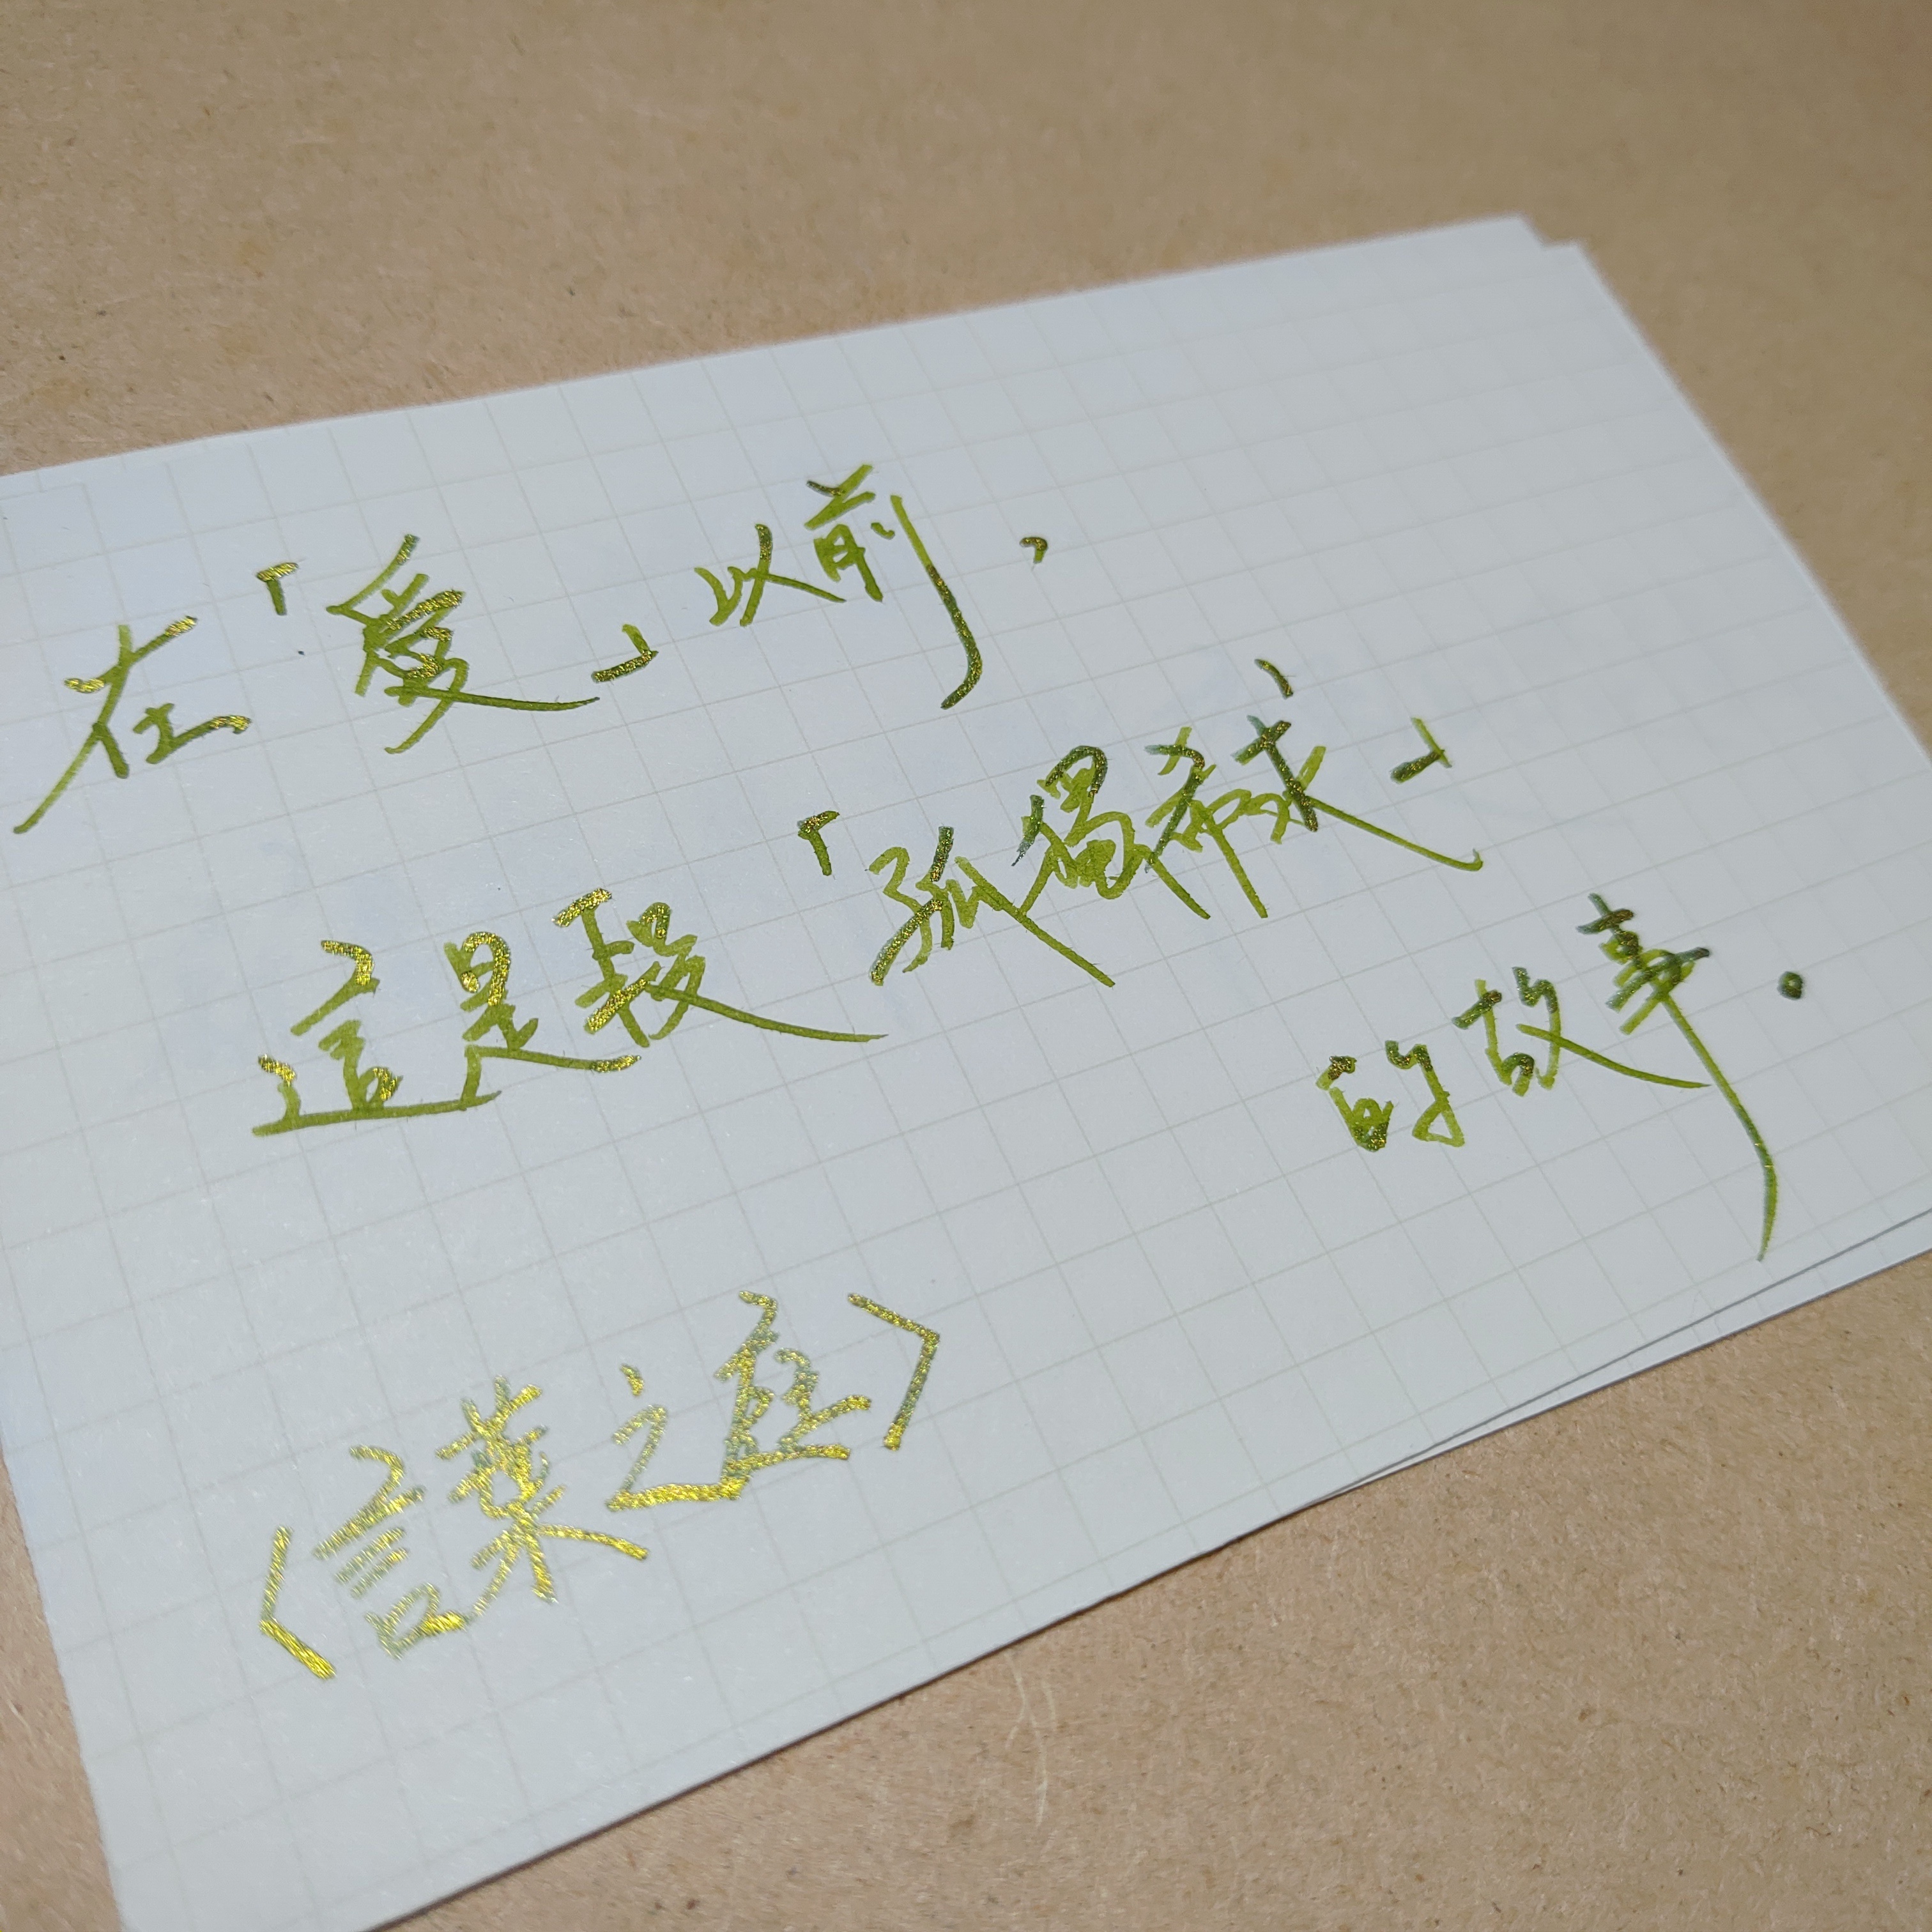 在「愛」以前，
這是段「孤獨希求」
的故事。
〈言葉之庭〉